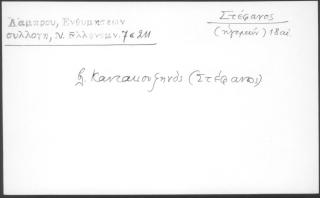 Λάμπρου, Ἐνθυμήσεων
συλλογή, Ν. Ἑλληνομν. 7 σ 211
Στέφανος
(ἡγεμών) 18 αἰ
βλ. Καντακουζηνός (Στέφανος)